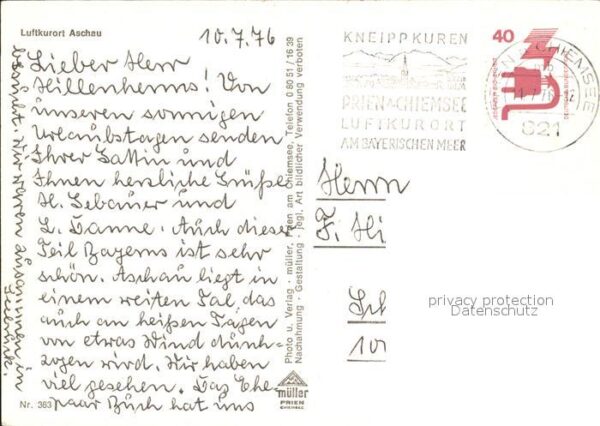 Luftkurort Aschau
10.7.76
Lieber Herr
Hillenhenns! Von
unseren sonnigen
Urlaubstagen senden
Ihrer Gattin und
Ihnen herzliche Grüße
H. Gebauer und
L. Hanne. Auch dieser
Teil Bayerns ist sehr
schön. Aschau liegt in
einem weiten Tal, das
auch an heißen Tagen
von etwas Wind durch-
zogen wird. Wir haben
viel gesehen. Das Ehe-
paar Büch hat uns
besucht. Wir waren zusammen in
Seebruck.
Nr. 363
Photo u. Verlag · müller, Prien am Chiemsee, Telefon 0 80 51 / 16 39
Nachahmung · Gestaltung · jegl. Art bildlicher Verwendung verboten
müller
PRIEN
CHIEMSEE
KNEIPPKUREN
PRIEN A CHIEMSEE
LUFTKURORT
AM BAYERISCHEN MEER
CHIEMSEE
821
40
Herrn
F. Hi
Sch
10
privacy protection
Datenschutz